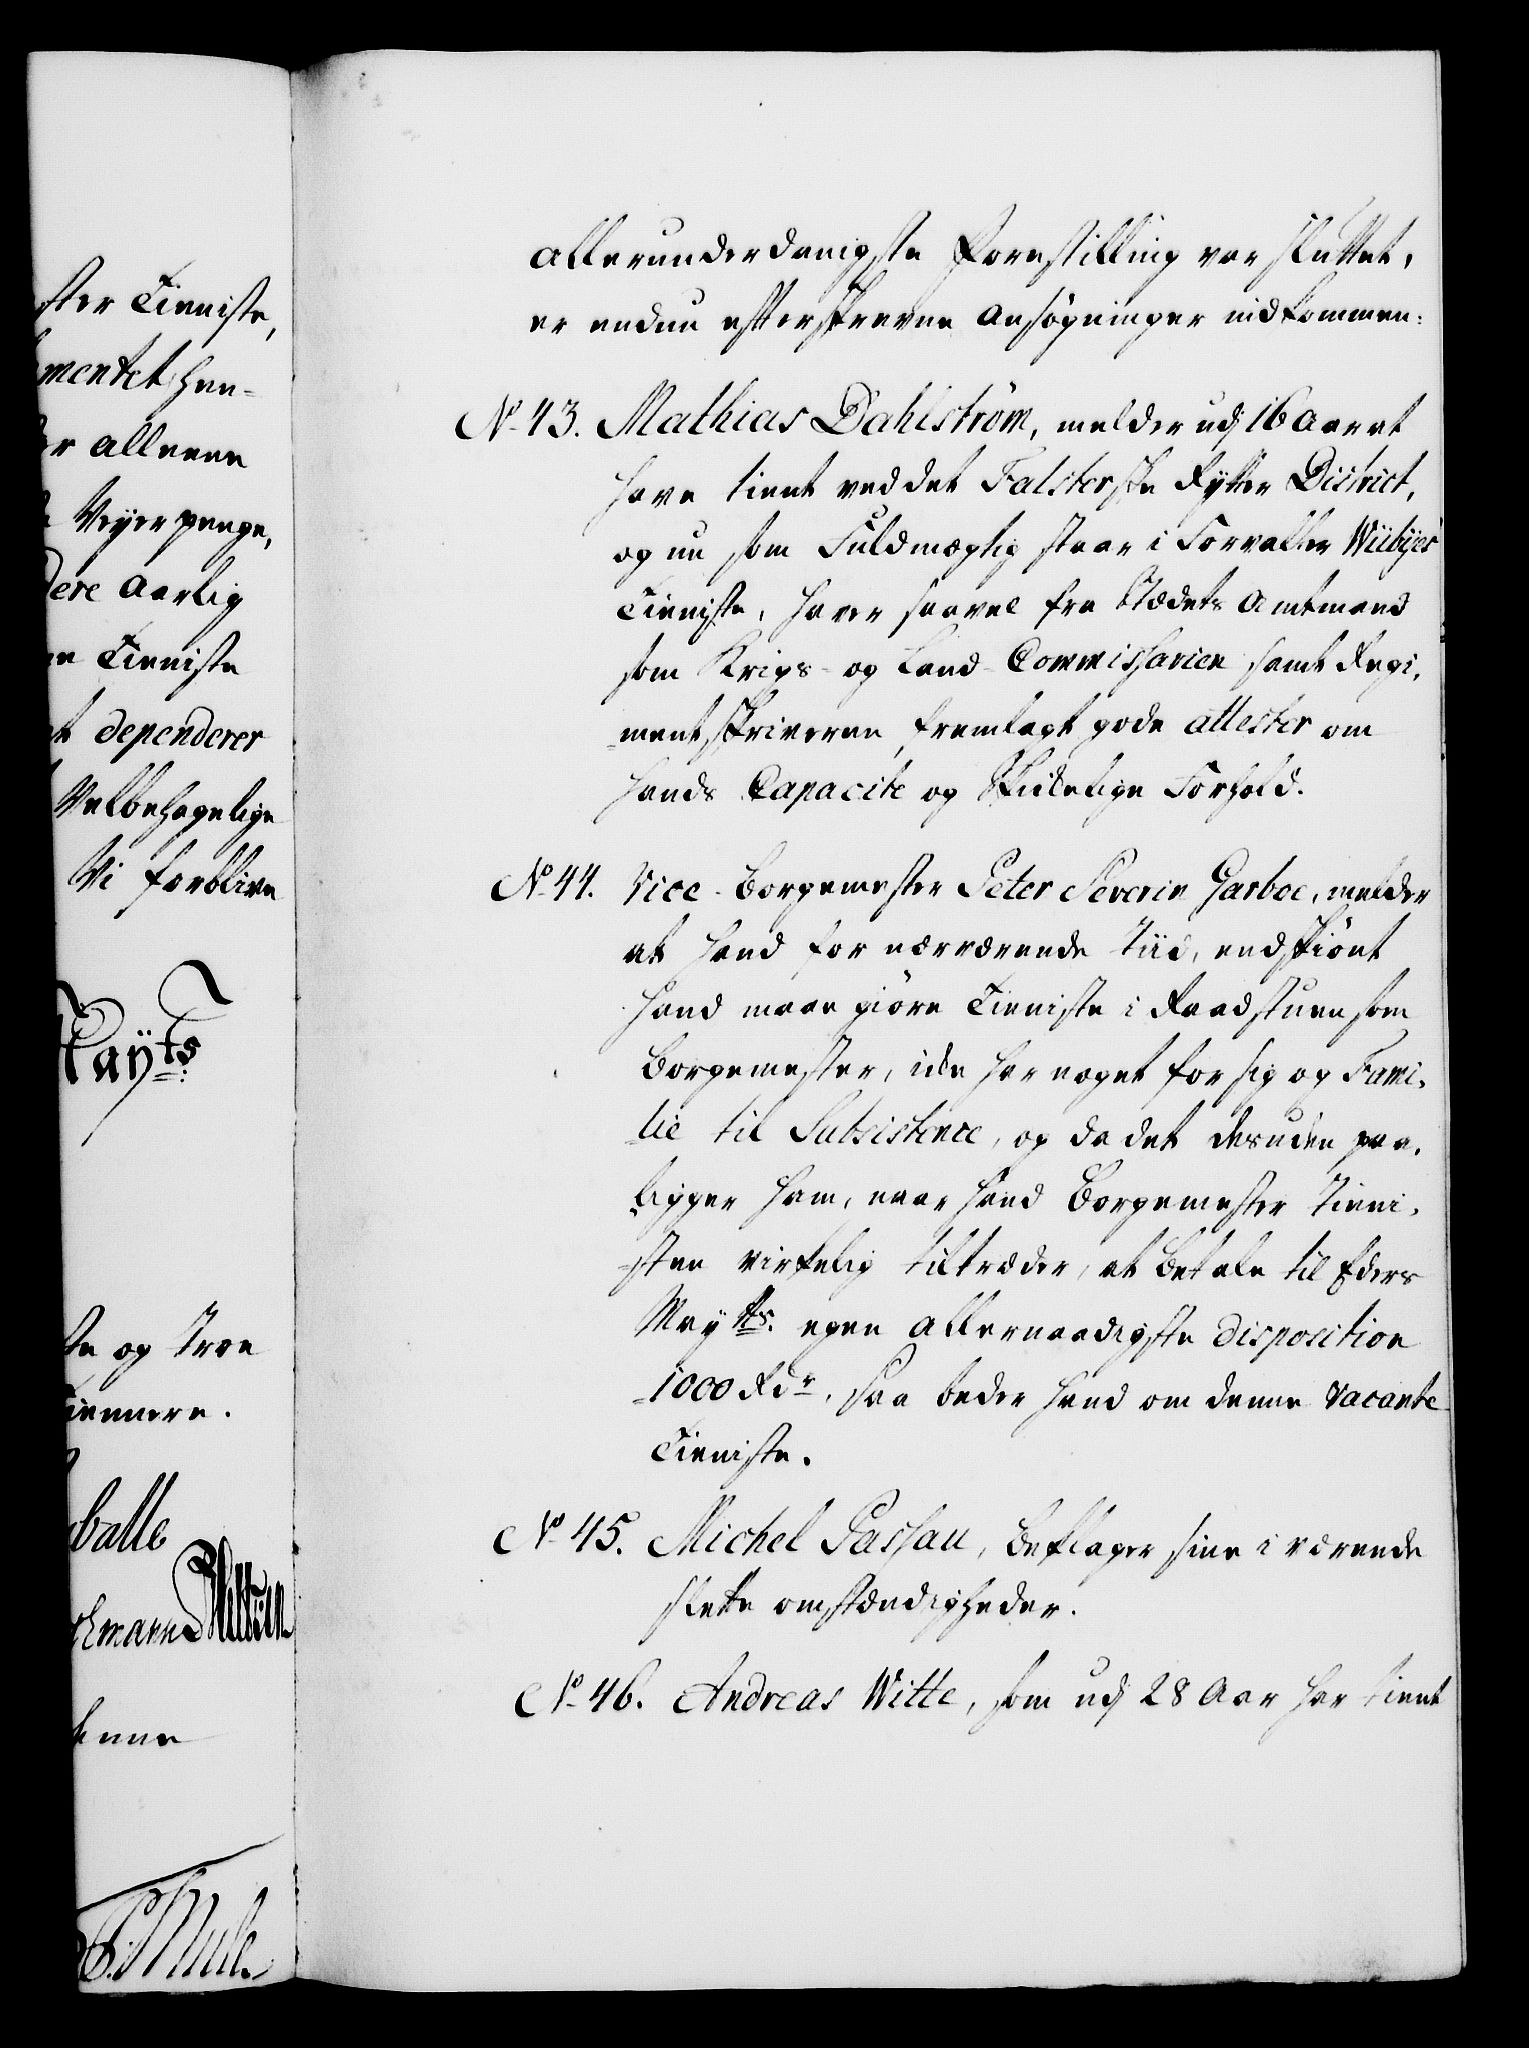 ster Tieniste,
mentet hen-
r alleene
Veyerpenge,
dere Aarlig
Tieniste
t dependerer
Velbehagelige
Vi forblive
Mayts
te og Troe
ienere.
balle
chmann
C. Mule
allerunderdanigste Forestilling var sluttet,
er endnu efterskrevne Ansøgninger indkommen:
No 43. Mathias Dahlström, melder udj 16 Aar at
have tient ved det Falsterske Rytter District,
og nu som Fuldmægtig staar i Forvalter Wiibyes
Tieniste, haver saavel fra Stædets Amtmand
som Krigs- og Land-Commissarien samt Regi-
mentskriveren fremlagt gode attester om
hands Capacite og Skikkelige Forhold.
No 44. Vice-Borgemester Peter Severin Garboe, melder
at hand for nærværende Tiid, endskiönt
hand maae giöre Tieniste i Raadstuen som
Borgemester, icke har noget for sig og Fami-
lie til Subsistence, og da det desuden paa-
ligger ham, naar hand Borgemester Tieni-
sten virkelig tiltræder, at betale til Eders
Mayts. egen allernaadigste disposition
1000 Rdr, saa beder hand om denne vacante
Tieniste.
No 45. Michel Passau, beklager sine i værende
slette omstændigheder.
No 46. Andreas Witte, som udj 28 Aar har tient